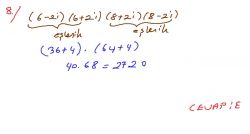 8/ (6-2i)(6+2i)(8+2i)(8-2i)
eşlenik eşlenik
(36+4).(64+4)
40.68=2720
CEVAP:E